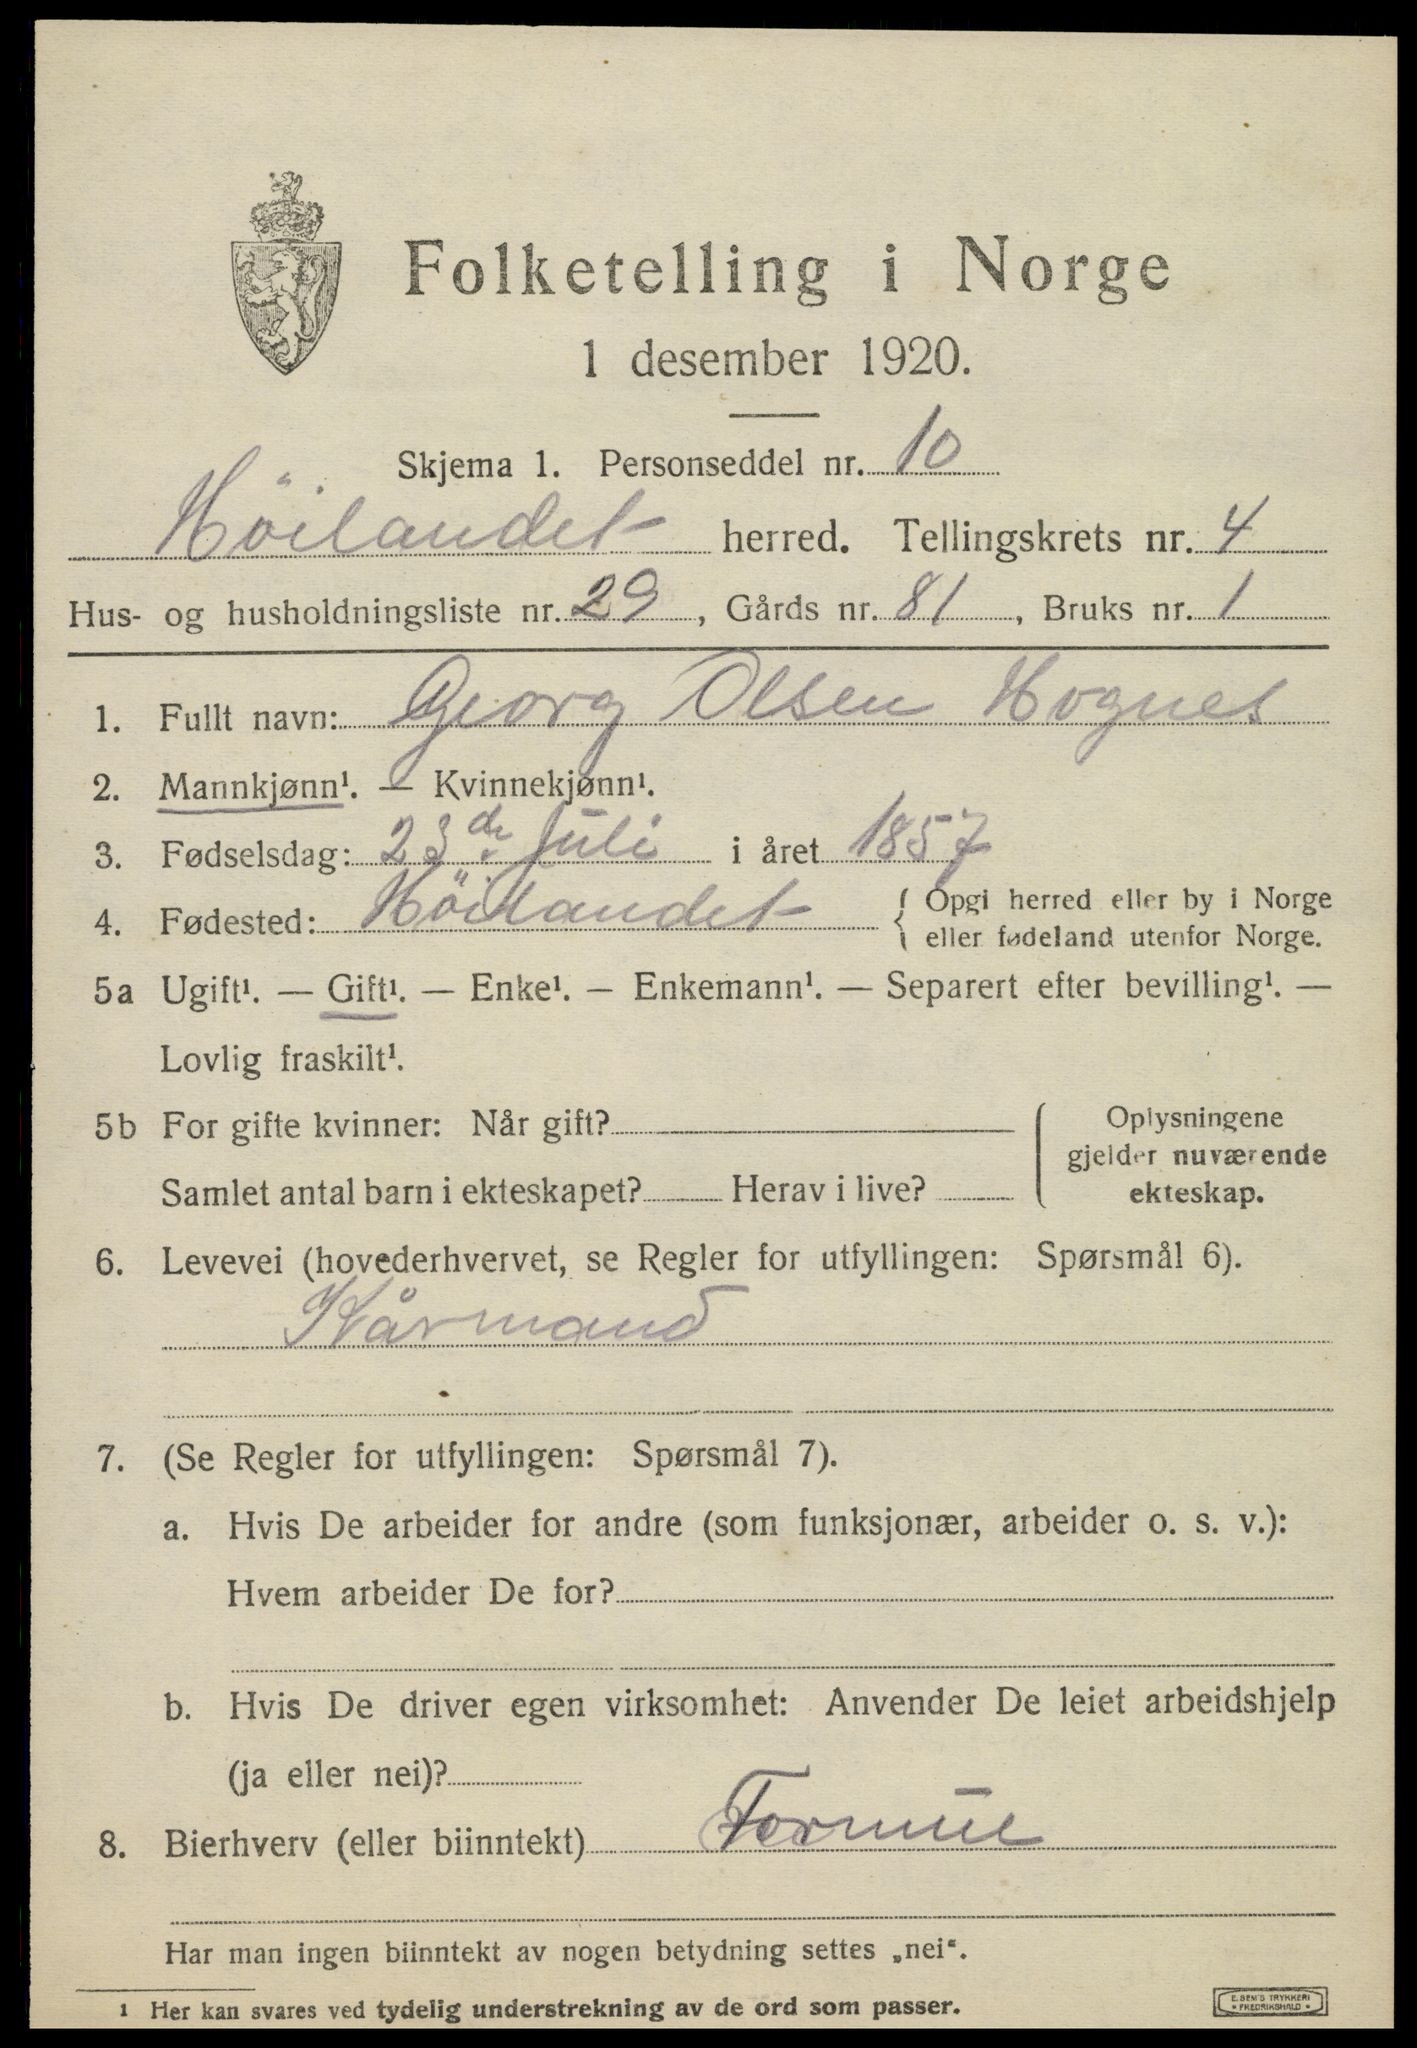 Folketelling i Norge
1 desember 1920.
Skjema 1. Personseddel nr. 10
Höilandet herred. Tellingskrets nr. 4
Hus- og husholdningsliste nr. 29, Gårds nr. 81, Bruks nr. 1
1. Fullt navn: Georg Olsen Hognes
2. Mannkjønn¹. — Kvinnekjønn¹.
3. Fødselsdag: 23de Juli i året 1857
4. Fødested: Höilandet { Opgi herred eller by i Norge
eller fødeland utenfor Norge.
5a Ugift¹. — Gift¹. — Enke¹. — Enkemann¹. — Separert efter bevilling¹. —
Lovlig fraskilt¹.
5b For gifte kvinner: Når gift?
Samlet antal barn i ekteskapet? Herav i live?
Oplysningene
gjelder nuværende
ekteskap.
6. Levevei (hovederhvervet, se Regler for utfyllingen: Spørsmål 6).
Kårmand
7. (Se Regler for utfyllingen: Spørsmål 7).
a. Hvis De arbeider for andre (som funksjonær, arbeider o. s. v.):
Hvem arbeider De for?
b. Hvis De driver egen virksomhet: Anvender De leiet arbeidshjelp
(ja eller nei)?
8. Bierhverv (eller biinntekt) Formue
Har man ingen biinntekt av nogen betydning settes „nei“.
1 Her kan svares ved tydelig understrekning av de ord som passer.
E. SEM'S TRYKKERI
* FREDRIKSHALD *